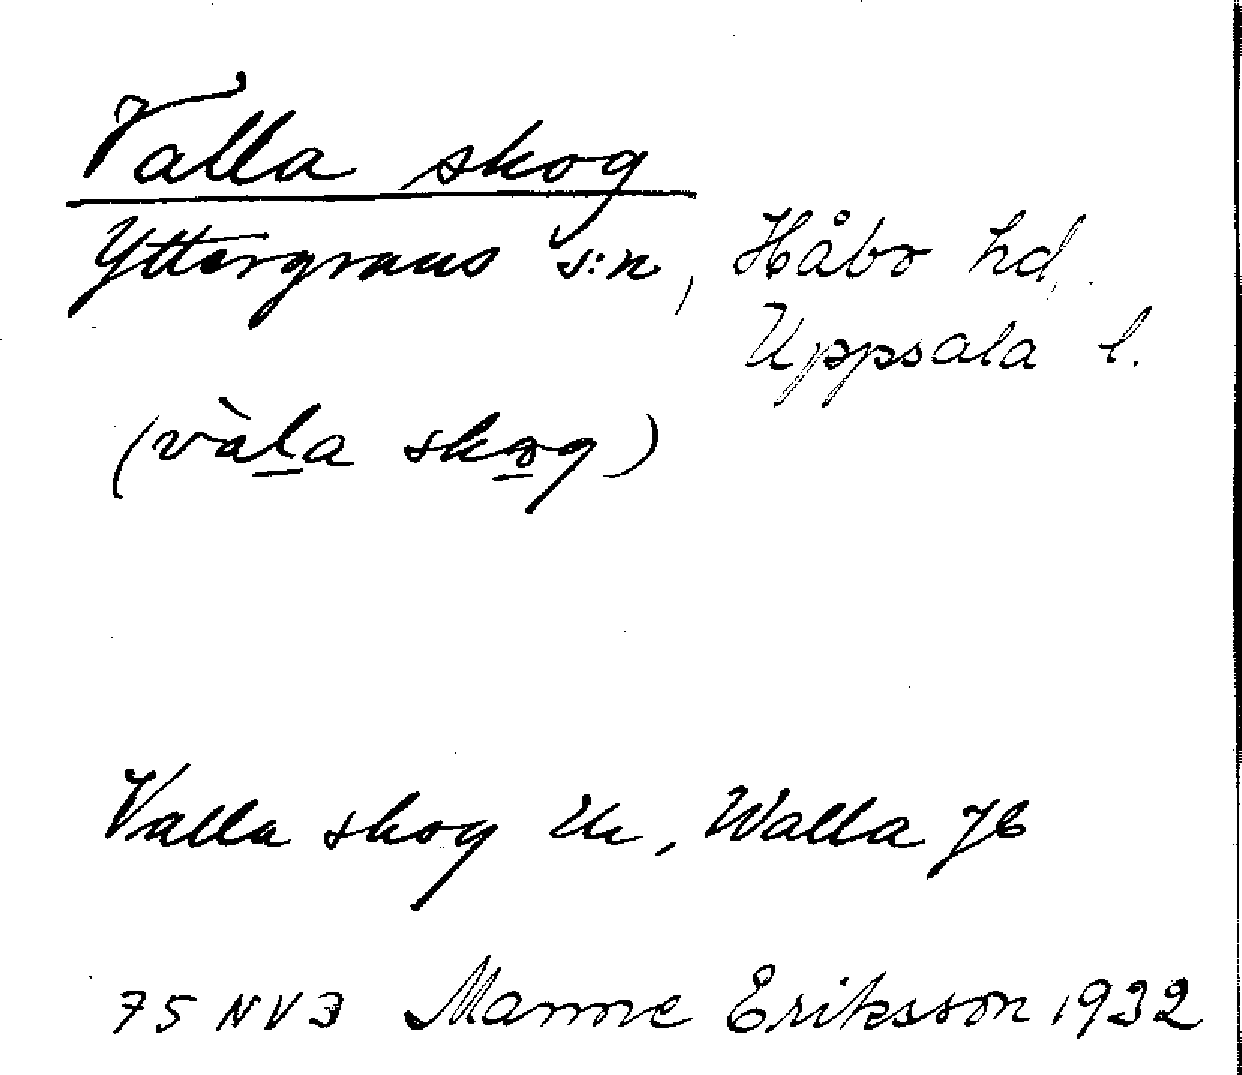 Valla skog
Yttergrans s:n, Håbo hd,
Uppsala l.
(vàla skog)
Valla skog Uk, Walla Jb
75 NV3 Manne Eriksson 1932